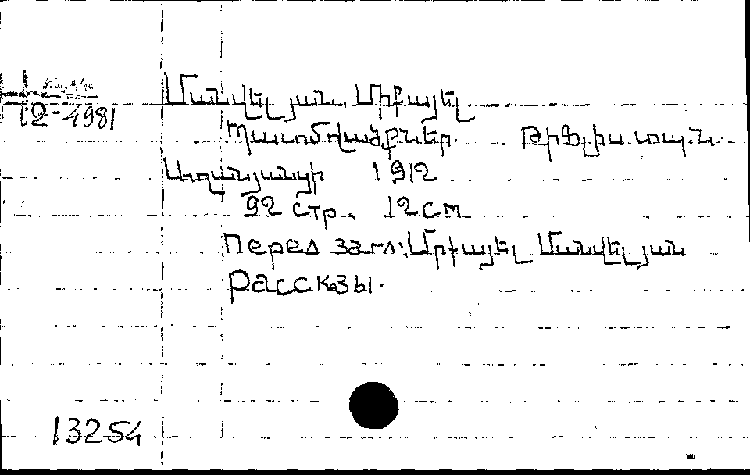 12-4981
Մանվելյան, Միքայել
Պատմվածքներ. Թիֆլիս. տպ. Ն.
Աղանյանի 1912
92 стр. 12 см.
Перед загл: Միքայել Մանվելյան
Рассказы.
13254